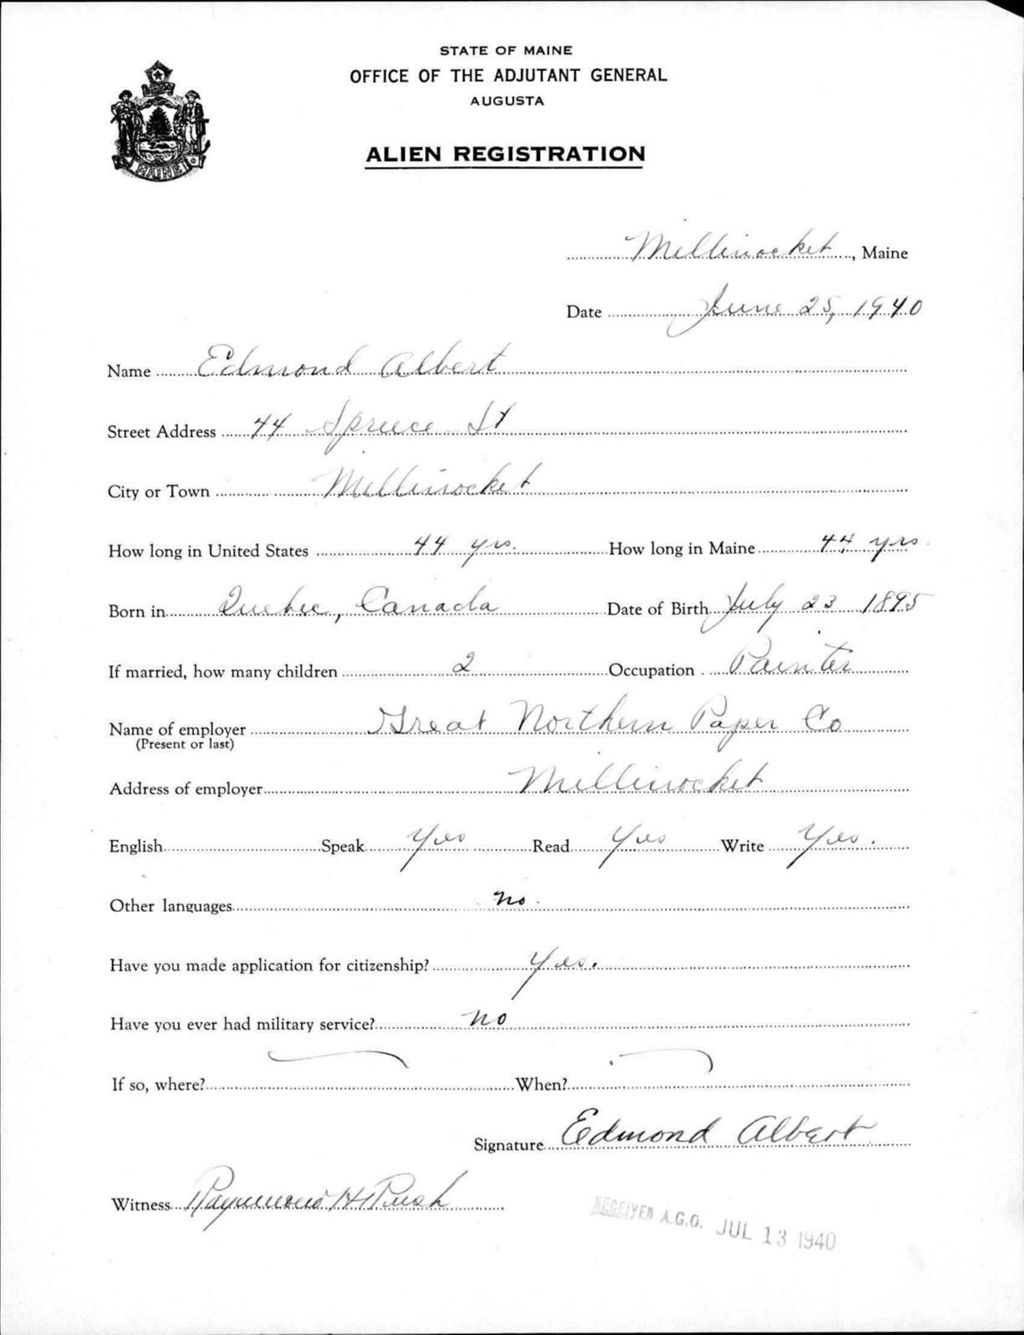 STATE OF MAINE
OFFICE OF THE ADJUTANT GENERAL
AUGUSTA
ALIEN REGISTRATION
MAINE
Millinocket, Maine
Date June 25, 1940
Name Edmond Albert
Street Address 44 Spruce St
City or Town Millinocket
How long in United States 44 yrs. How long in Maine 44 yrs.
Born in Quebec, Canada Date of Birth July 23 1895
If married, how many children 2 Occupation Painter
Name of employer Great Northern Paper Co
(Present or last)
Address of employer Millinocket
English Speak Yes Read Yes Write Yes.
Other languages no.
Have you made application for citizenship? Yes.
Have you ever had military service? no
If so, where? When?
Signature Edmond Albert
Witness Raymond H Rush
RECEIVED A.G.O. JUL 13 1940